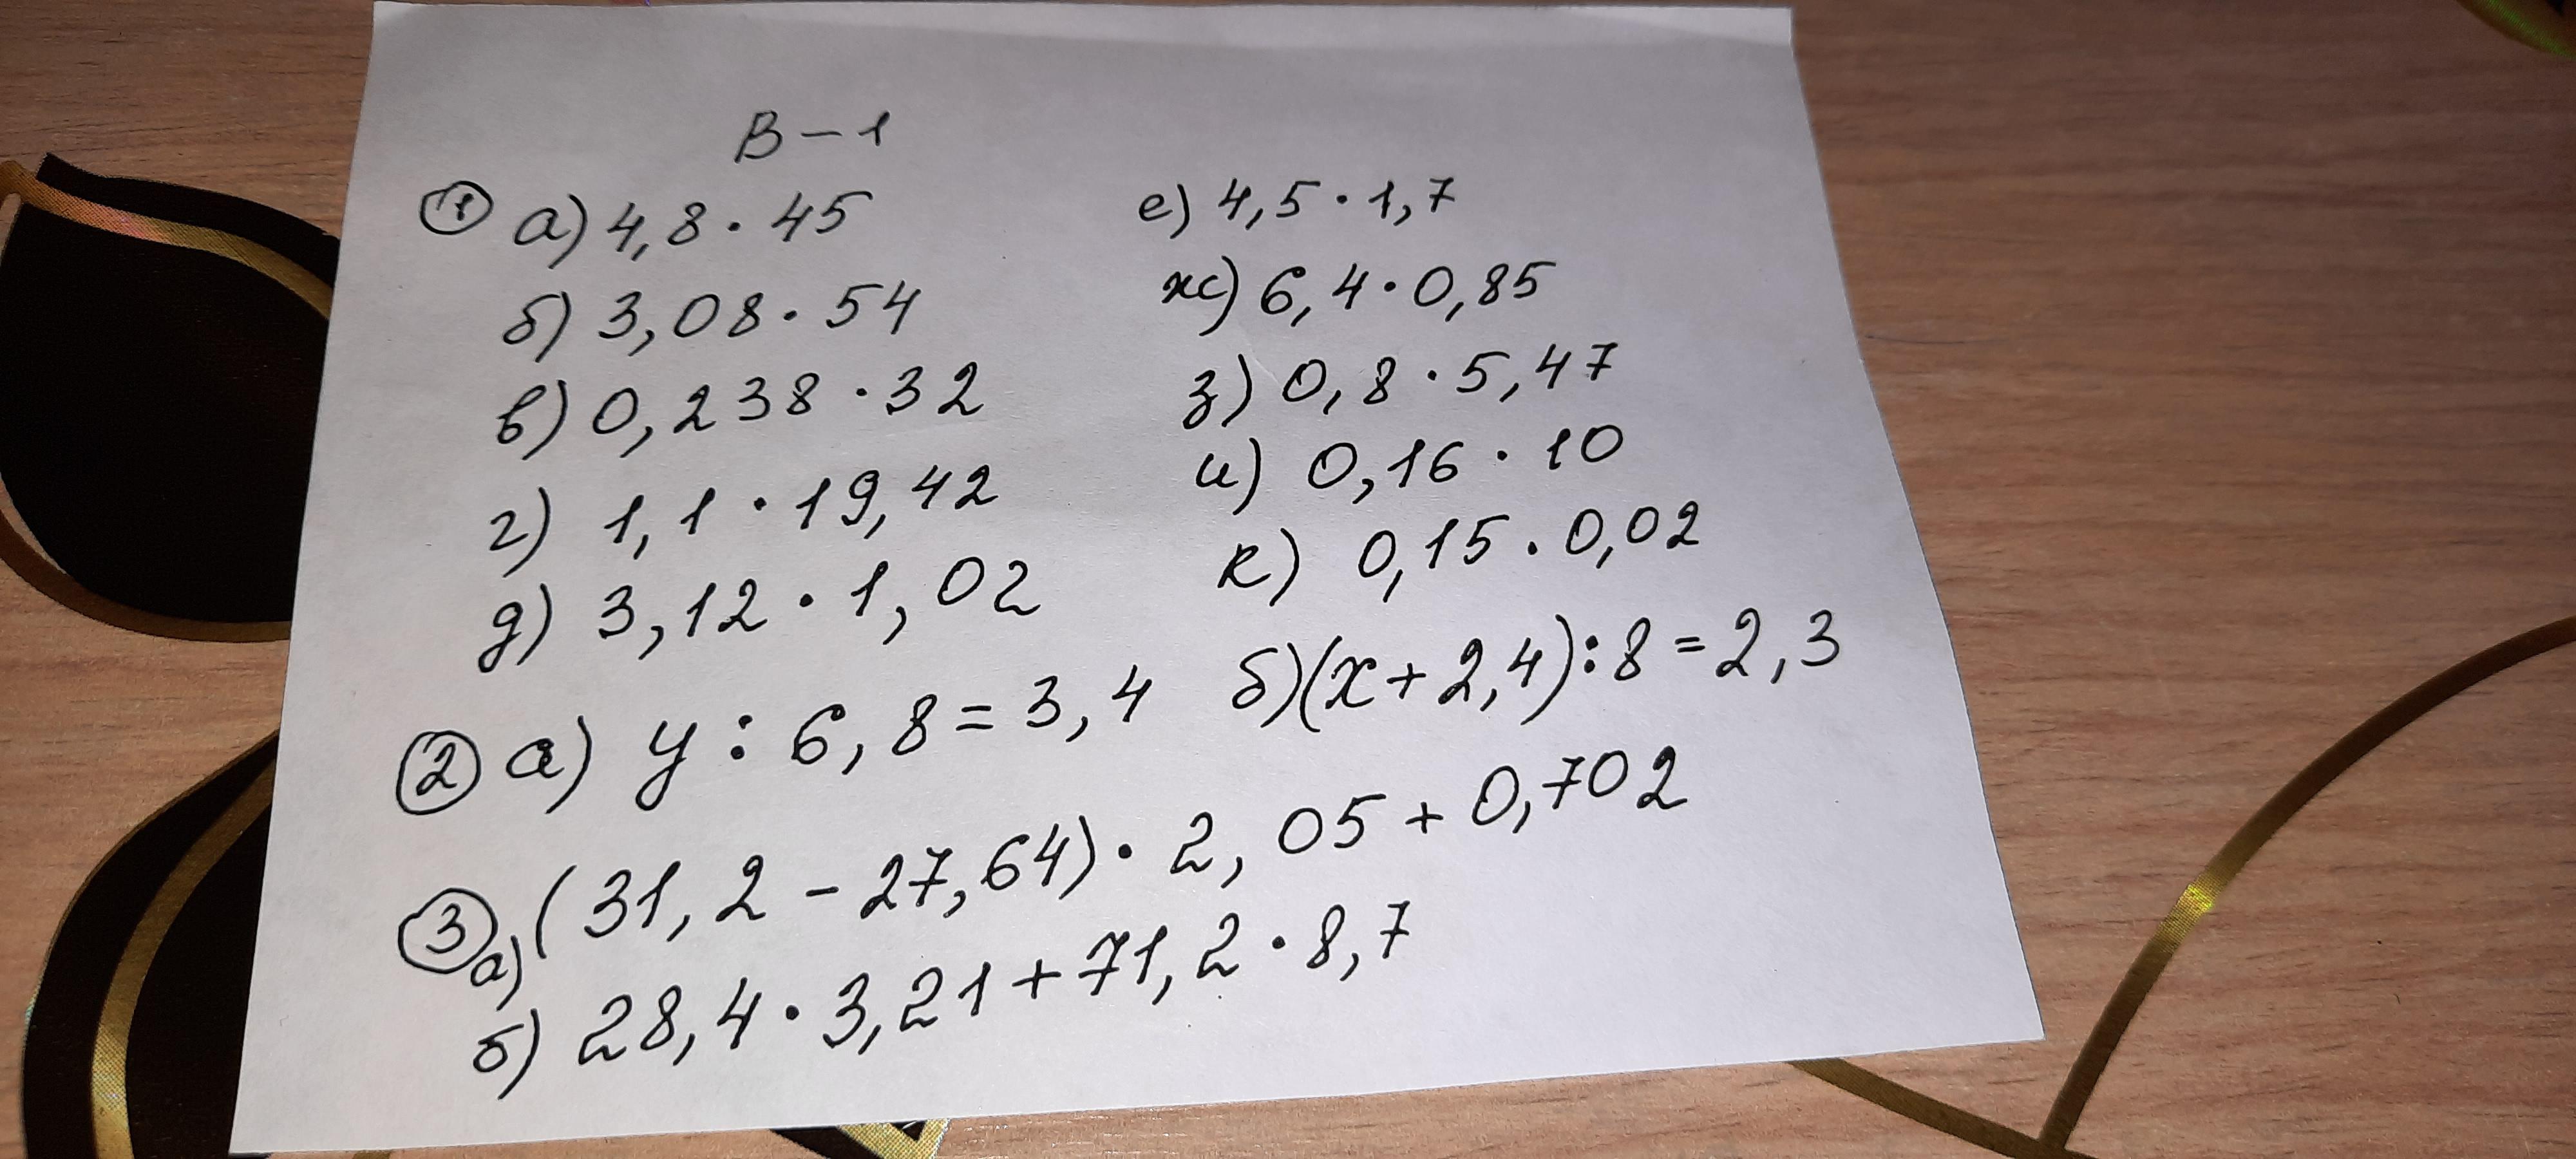 В-1
① а) 4,8 · 45
б) 3,08 · 54
в) 0,238 · 32
г) 1,1 · 19,42
д) 3,12 · 1,02
е) 4,5 · 1,7
ж) 6,4 · 0,85
з) 0,8 · 5,47
и) 0,16 · 10
к) 0,15 · 0,02
② а) у : 6,8 = 3,4 б) (х + 2,4) : 8 = 2,3
③ а) (31,2 - 27,64) · 2,05 + 0,702
б) 28,4 · 3,21 + 71,2 · 8,7